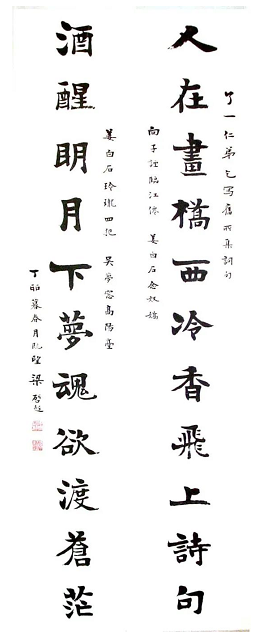 了一仁弟乞写舊所集詞句
人在畫橋西冷香飛上詩句
向子諲臨江僊 姜白石念奴嬌
姜白石玲瓏四犯 吴夢窗高陽臺
酒醒眀月下夢魂欲渡蒼茫
丁卯暮春月既望 梁啓超